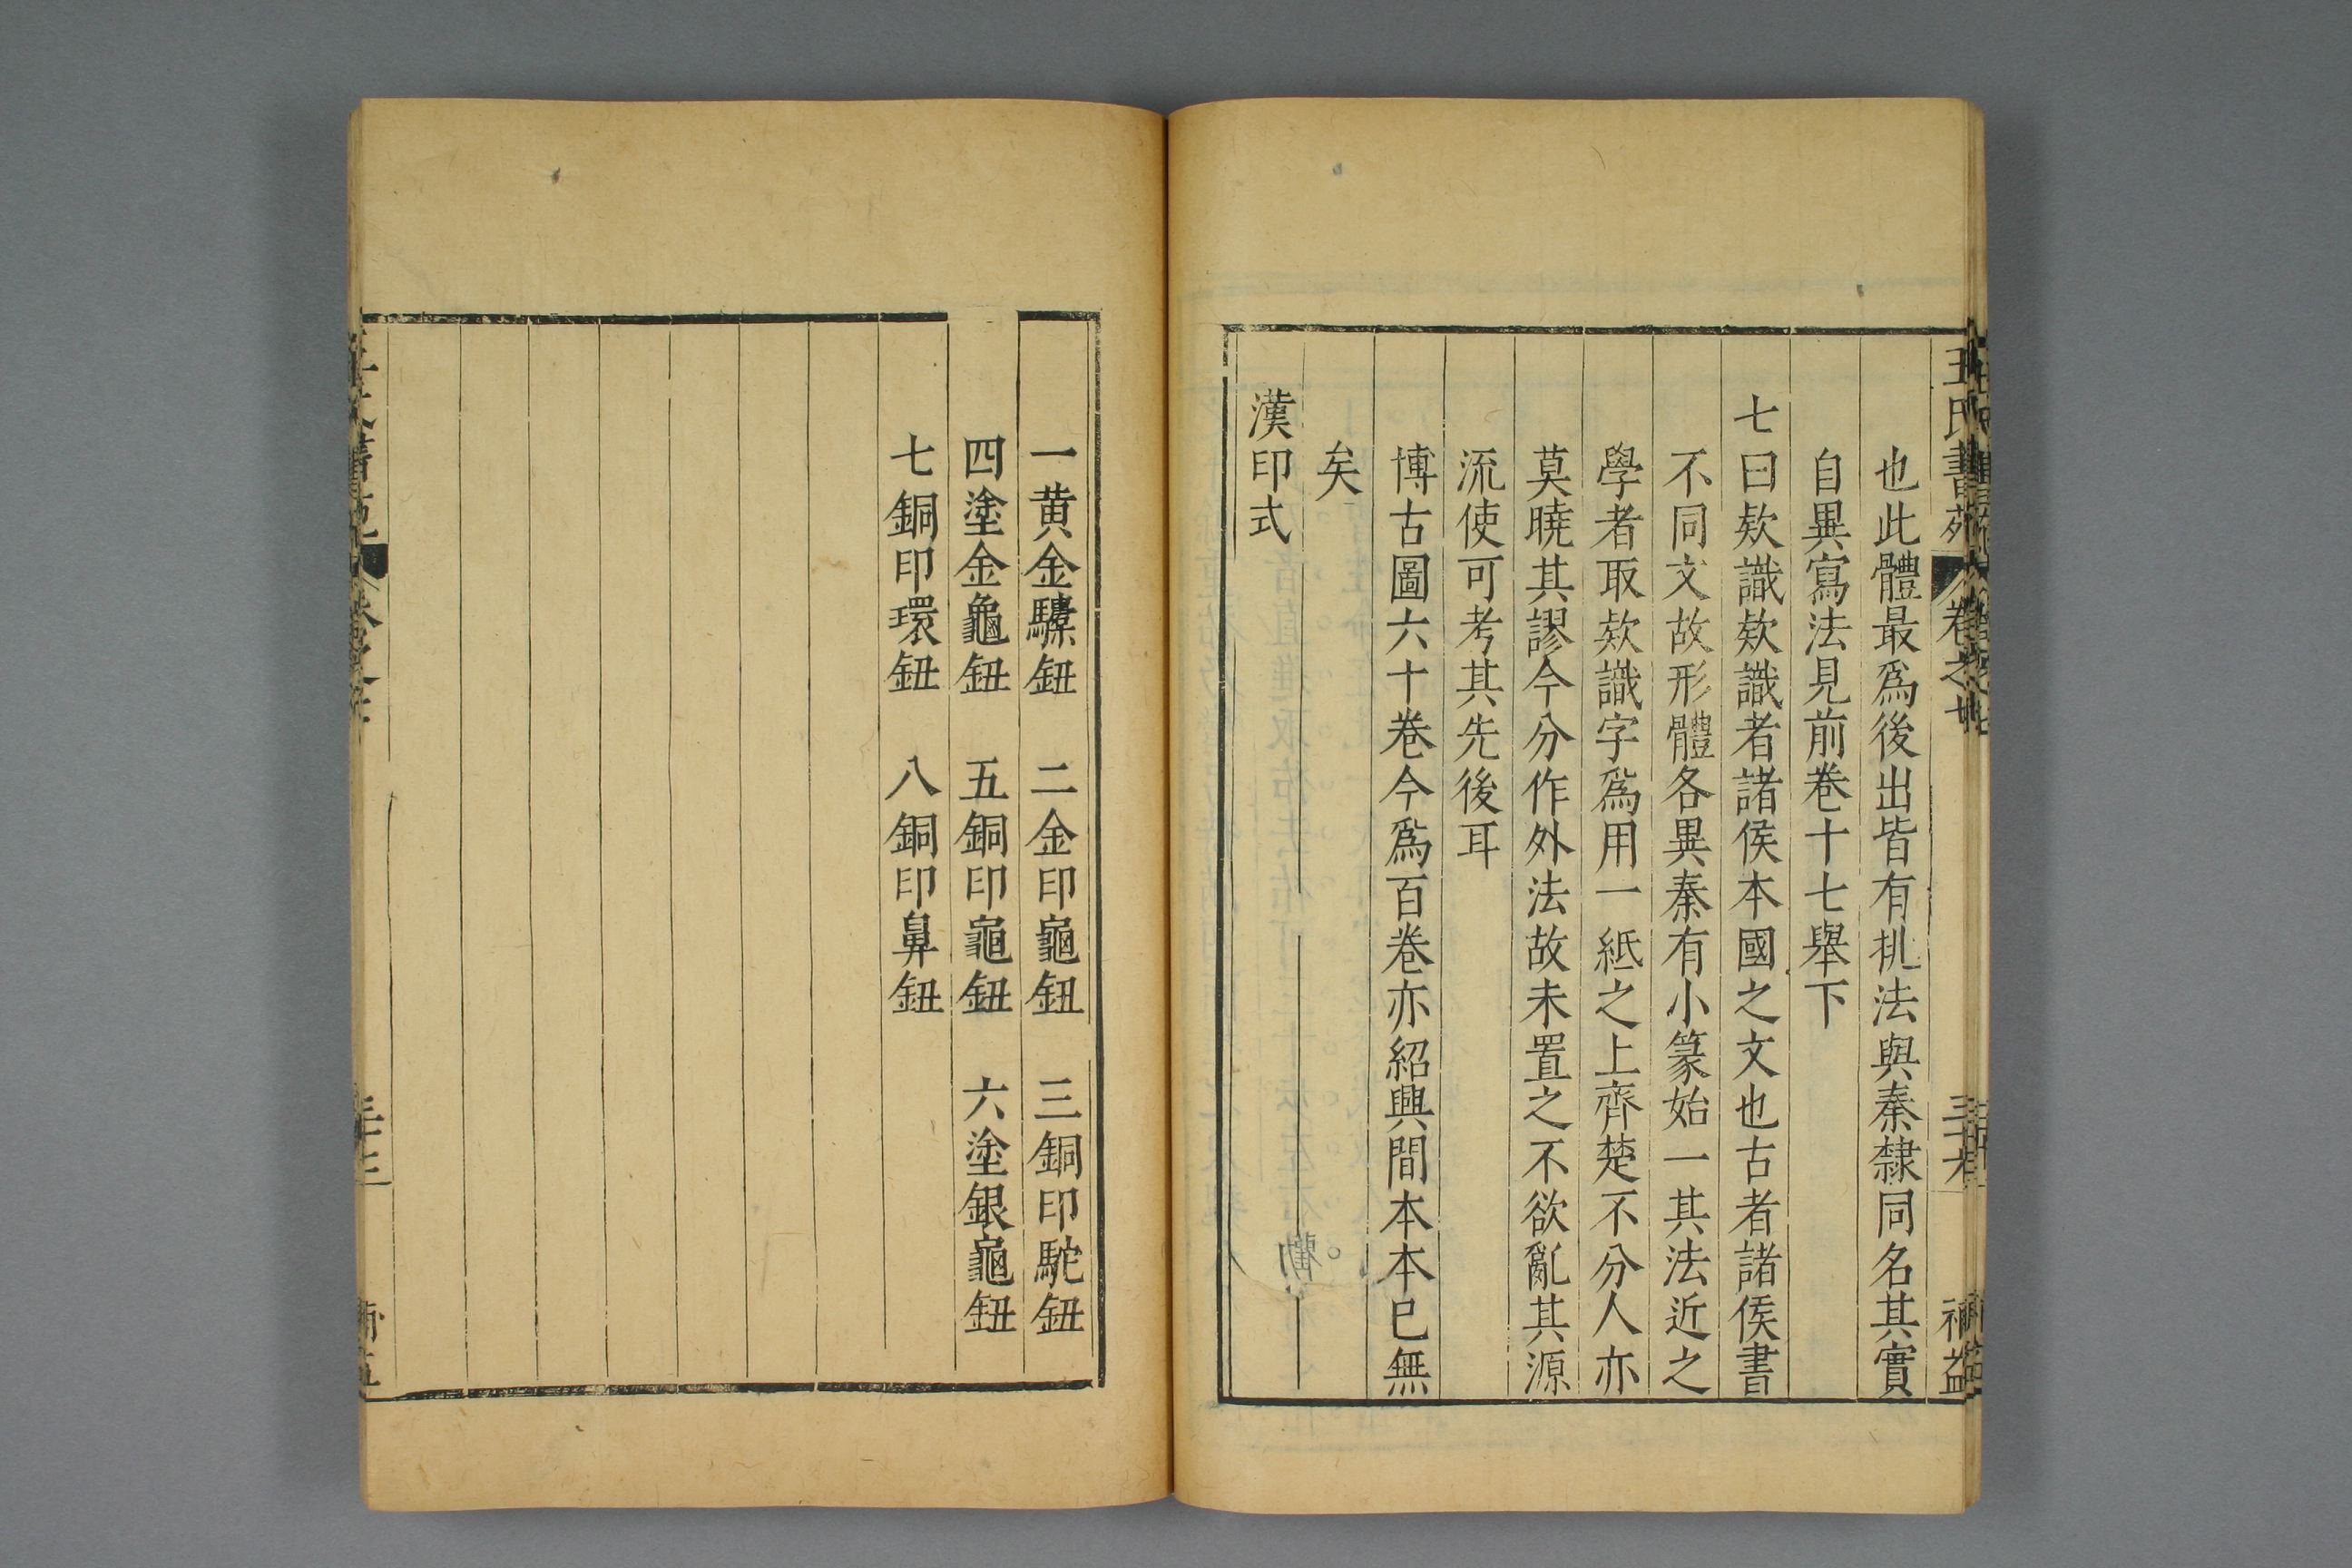 也此體最爲後出皆有挑法與秦隸同名其實
自異寫法見前卷十七舉下
七曰欵識欵識者諸侯本國之文也古者諸侯書
不同文故形體各異秦有小篆始一其法近之
學者取欵識字爲用一紙之上齊楚不分人亦
莫曉其謬今分作外法故未置之不欲亂其源
流使可考其先後耳
博古圖六十卷今爲百卷亦紹興間本本已無
矣
漢印式
一黄金驝鈕　二金印龜鈕　三銅印駝鈕
四塗金龜鈕　五銅印龜鈕　六塗銀龜鈕
七銅印環鈕　八銅印鼻鈕